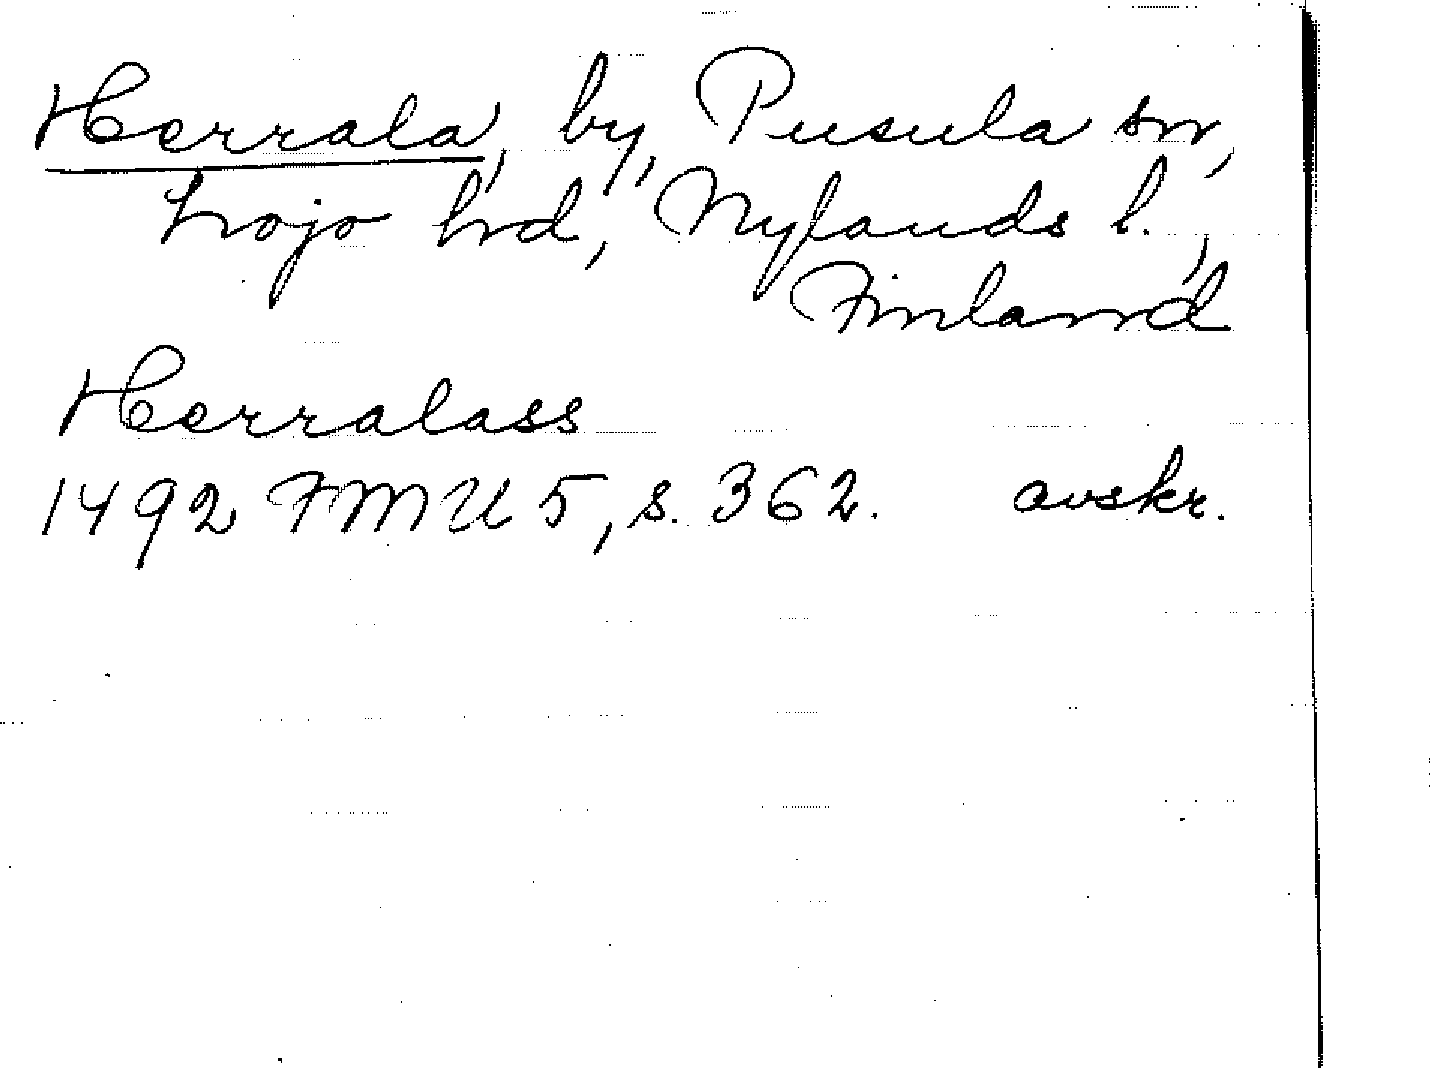 Herrala, by, Pusula sn,
Lojo hrd, Nylands l.,
Finland
Herralass
1492 FMU 5, s. 362. avskr.